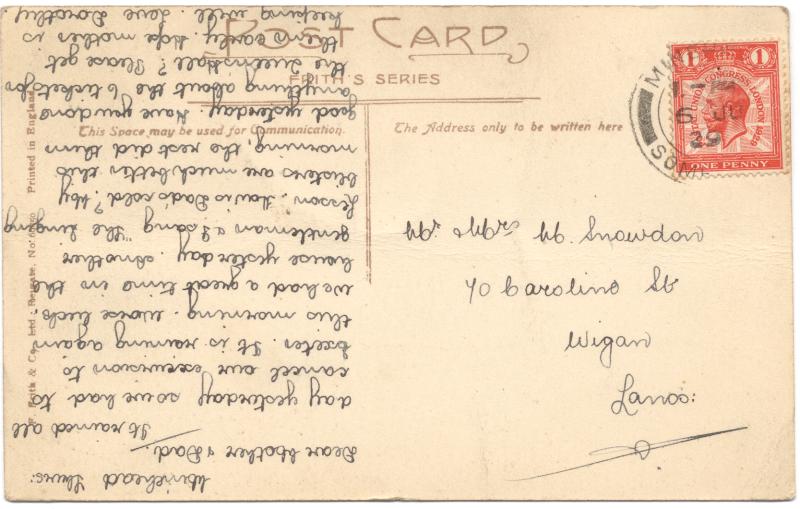 POST CARD
FRITH'S SERIES
This Space may be used for Communication.
The Address only to be written here
W. Frith & Co., Ltd. Reigate, No.      Printed in England
Minehead Thurs:
Dear Mother & Dad.
It rained all
day yesterday so we had to
cancel our excursion to
Exeter. It is raining again
this morning. Worse luck
we had a great time in the
house yesterday. Another
gentleman & I sang "The Singing
Lesson. How's Dad's cold? My
blisters are much better this
morning, the rest did them
good yesterday. Have you done
anything about the 6 tickets for
the Queens Hall? Please get
them early. Hope mother is
keeping well. Love Dorothy
Mr & Mrs M. Snowdon
70 Caroline St
Wigan
Lancs:
MIN
6 JU
29
SOM
1 1
POSTAL UNION CONGRESS LONDON 1929
ONE PENNY